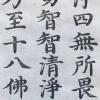 行四無所畏
勇智智清淨
乃至十八佛